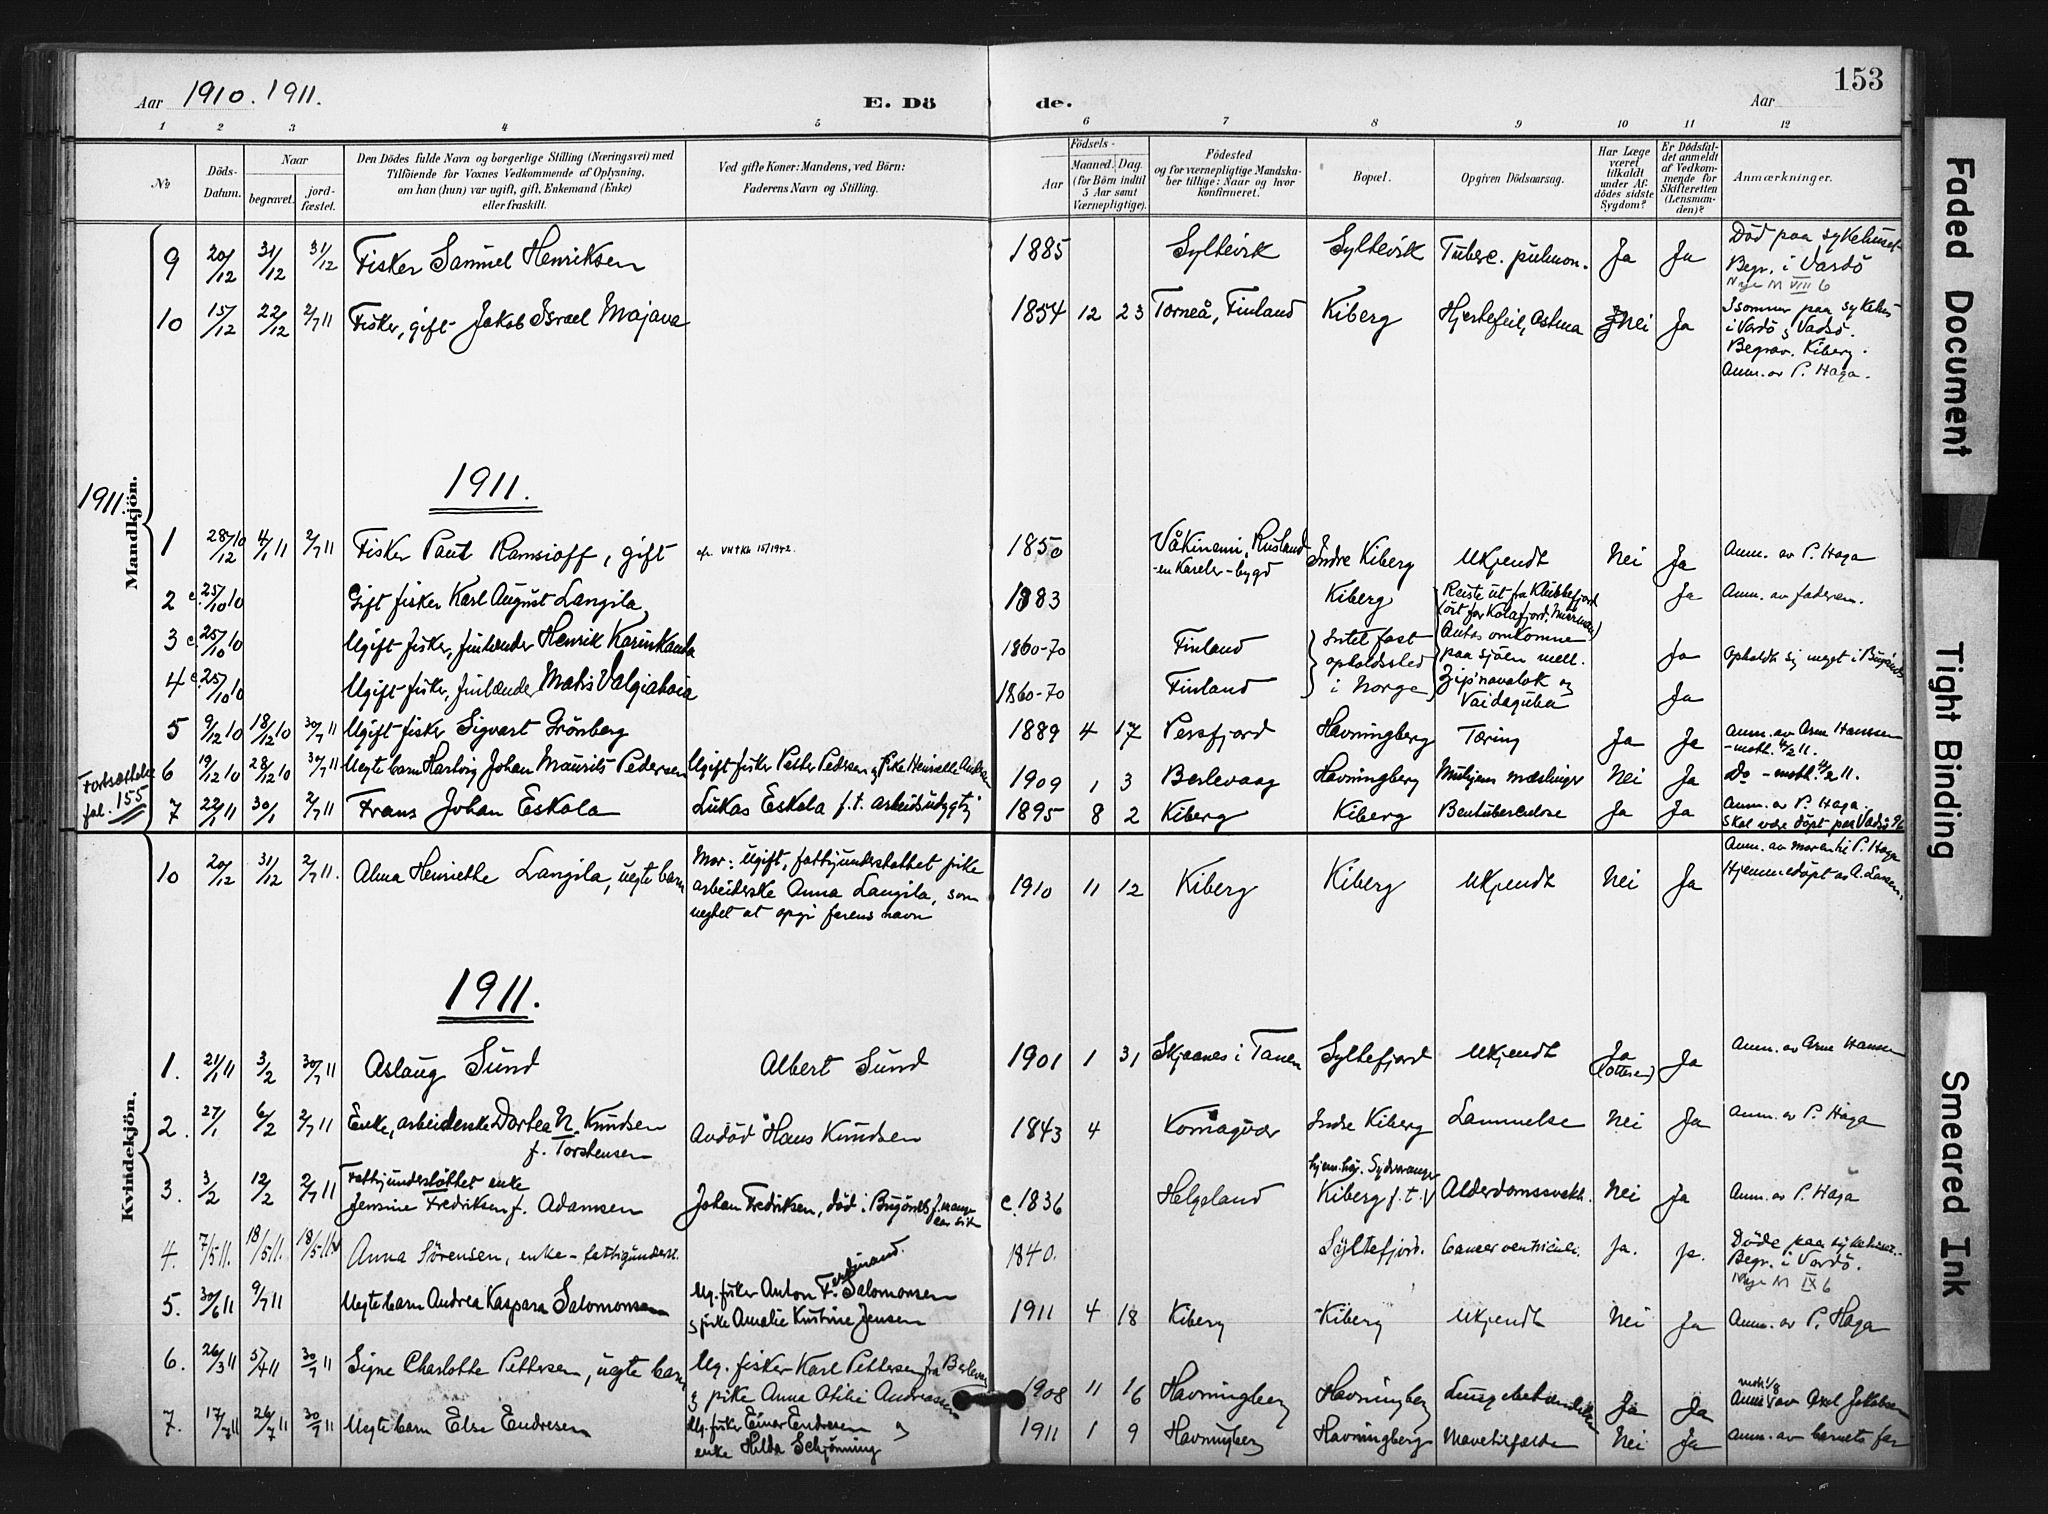 Aar 1910. 1911.
E. Dö
de.
Aar
153
1 2 3 4 5 6 7 8 9 10 11 12
No
Döds-
Datum.
Naar
begravet.
jord-
fæstet.
Den Dödes fulde Navn og borgerlige Stilling (Næringsvei) med
Tilföiende for Voxnes Vedkommende af Oplysning,
om han (hun) var ugift, gift, Enkemand (Enke)
eller fraskilt.
Ved gifte Koner: Mandens, ved Börn:
Faderens Navn og Stilling.
Födsels-
Aar
Maaned. Dag.
(for Börn indtil
5 Aar samt
Værnepligtige).
Födested
og for værnepligtige Mandska-
ber tillige: Naar og hvor
konfirmeret.
Bopæl.
Opgiven Dödsaarsag.
Har Læge
været
tilkaldt
under Af-
dödes sidste
Sygdom?
Er Dödsfal-
det anmeldt
af Vedkom-
mende for
Skifteretten
(Lensman-
den)?
Anmærkninger.
Mandkjön.
9 20/12 31/12 31/12 Fisker Samuel Henriksen 1885 Syltevik Syltevik Tuberc. pulmon. Ja Ja Död paa sykehuset
Begr. i Vardö
Nye M VIII 6
10 15/12 22/12 2/7 11 Fisker, gift Jakob Israel Majava 1854 12 23 Torneå, Finland Kiberg Hjertefeil, Astma Nei Ja I sommer paa sykehus
i Vardö & Vadsö.
Begrav. Kiberg.
Anm. av P. Haga.
1911.
1911.
1 28/12 10 4/1 11 2/7 11 Fisker Paul Ramsioff, gift 1850 Våkinemi, Rusland Indre Kiberg Ukjendt Nei Ja Anm. av P. Haga
-en Kareler-bygd
2 c. 25/10 10 Gift fisker Karl August Langila 1883 Kiberg Reiste ut fra Ja Anm. av faderen.
(öst for Kolafjord,
3 c. 25/10 10 Ugift fisker, finlænder Henrik 1860-70 Finland Intet fast Antas omkomne Ja Opholdt sig meget i
opholdssted paa sjöen mell.
4 c. 25/10 10 Ugift fisker, finlænder 1860-70 Finland i Norge Zipnavolok og Ja
Vaidaguba
5 9/12 10 18/12 10 30/7 11 Ugift fisker Sigvart Grönberg 1889 4 17 Persfjord Havningberg Tæring Ja Ja Anm. av Arne Hanssen
6 19/12 10 28/12 10 30/7 11 Uegte barn Hartvig Johan Maurits Pedersen Ugift fisker Petter Pedersen & Pike Henriette 1909 1 3 Berlevaag Havningberg meslinger Nei Ja Do
Fortsættelse
fol. 155
7 22/1 11 30/1 2/7 11 Frans Johan Eskola Lukas Eskola f.t. arbeidsudygtig 1895 8 2 Kiberg Kiberg Bentuberculose Ja Ja Anm. av P. Haga.
Skal være döpt paa Vadsö 96
Kvindekjön.
10 20/12 31/12 2/7 11. Alma Henriethe Langila, uegte barn Mor: ugift, fattigunderstöttet pike 1910 11 12 Kiberg Kiberg Ukjendt Nei Ja Anm. av moren til P. Haga
arbeiderske Anna Langila, som Hjemmedöpt av A. Larsen.
negtet at opgi farens navn
1911.
1. 21/1 11 3/2 30/7 11 Aslaug Sund Albert Sund 1901 1 31 Skjaanes i Tanen Syltefjord Ukjendt Ja Ja Anm. av Arne Hansen
2. 27/1 6/2 2/7 11 Enke, arbeiderske Dortea N. Knudsen Avdöd Hans Knudsen 1843 4 Komagvær Indre Kiberg Lammelse Nei Ja Anm. av P. Haga
f. Torstensen
hjem.hör. Sydvaranger
3. 3/2 12/2 2/7 11 Fattigunderstöttet enke
Jensine Fredriksen f. Adamsen Johan Fredriksen, död i Bugönes f. mange c. 1836 Helgeland Kiberg f.t. Alderdomssvakh. Nei Ja Anm. av P. Haga
aar siden
4. 7/5 11. 18/5 11. 18/5 11. Anna Sörensen, enke - fattigunderst. 1840. Syltefjord. Cancer ventriculi. Ja. Ja. Döde paa sykehuset.
Begr. i Vardö.
Nye M IX 6
5. 30/6 11 9/7 11 Uegte barn Andrea Kaspara Salomonsen Ug. fisker Anton Ferdinand Salomonsen 1911 4 18 Kiberg Kiberg Ukjendt Nei Ja Anm. av P. Haga
& pike Amalie Kristine Jensen
6. 26/3 11 5/4 11 30/7 11 Signe Charlotte Pettersen, uegte barn Ug. fisker Karl Pettersen fra Berlevaag
& pike Anna Otilie Andreassen 1908 11 16 Havningberg Havningberg Lungebetændelse Ja Ja Anm. av Axel Jakobsen
7. 17/7 11 26/7 11 30/7 11 Uegte barn Else Endresen Ug. fisker Einar Endresen & 1911 1 9 Havningberg Havningberg Mavetilfælde Nei Ja Anm. av barnets far
enke Hilda Schjönning
Faded Document
Tight Binding
Smeared Ink